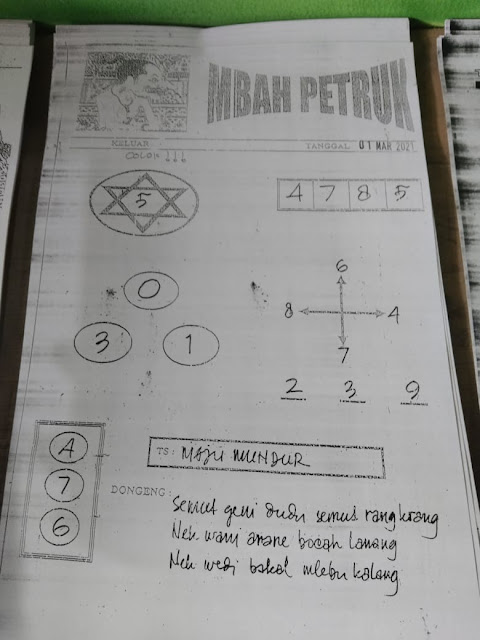 MBAH PETRUK
KELUAR TANGGAL 01 MAR 2021
COLOK !!!
5
4 7 8 5
0
3 1
6
8 4
7
2 3 9
4
7
6
TS: MAJU MUNDUR
DONGENG:
Semut geni dudu semut rangkrang
Nek wani arane bocah lanang
Nek wedi bakal mlebu kalang